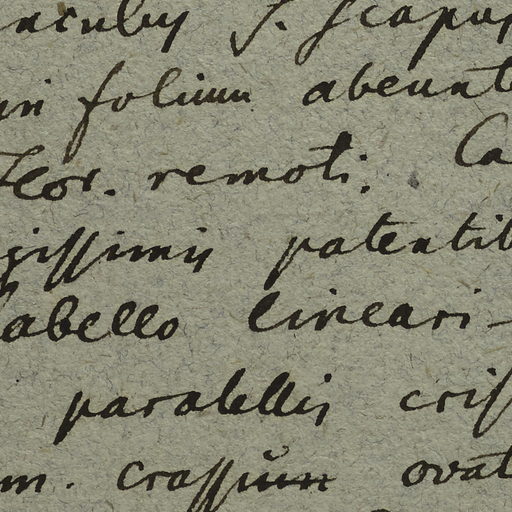 S. Scapus
in folium abeunt
Flor. remoti. Ca
gissimis patentib
labello lineari-
parallelis cris
m. crassum ovat